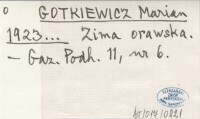 o GOTKIEWICZ Marian
1923... Zima orawska.
- Gaz. Podh. 11, nr 6.